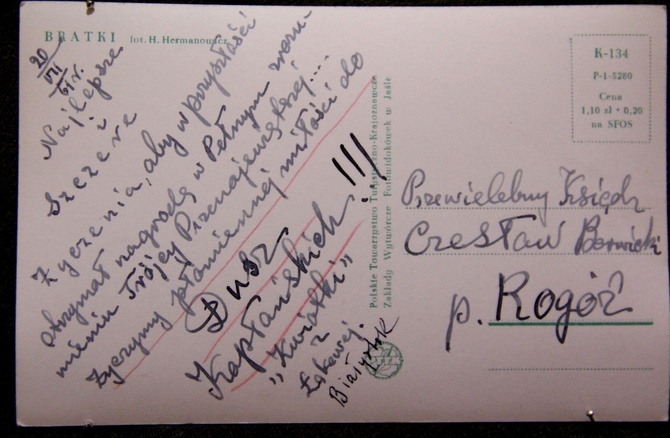 BRATKI fot. H. Hermanowicz
20/VII 61 r.
Najlepsze
i
Szczere
życzenia, aby w przyszłości
otrzymał nagrodę w Pełnym
mieniu Trójcy Przenajświętszej....
życzymy płomiennej miłości do
Dusz
Kapłańskich!!!
„Kwiatki”
z
Łąkowej.
Białystok
Polskie Towarzystwo Turystyczno-Krajoznawcze
Zakłady Wytwórcze Fotowidokówek w Jaśle
K-134
P-1-5260
Cena
1,10 zł + 0,20
na SFOS
Przewielebny Ksiądz
Czesław Berwicki
p. Rogóż